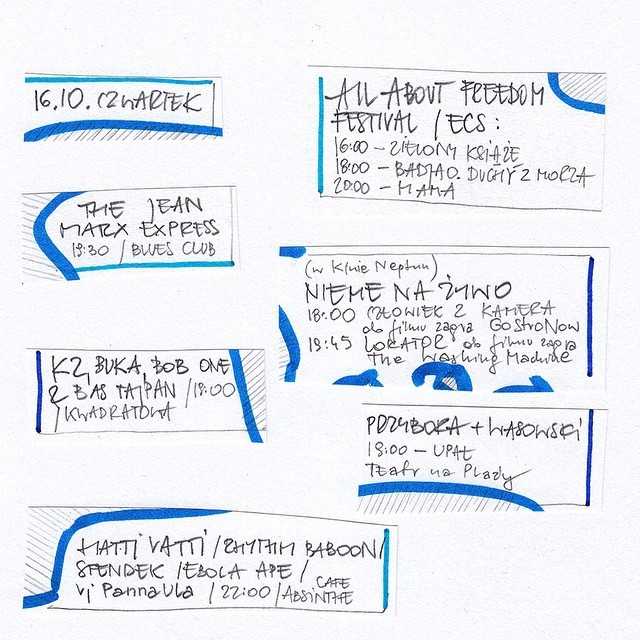 16.10. CZWARTEK
ALL ABOUT FREEDOM
FESTIVAL / ECS:
16:00 – ZIELONY KSIĄŻĘ
18:00 – BADJAO. DUCHY Z MORZA
20:00 – MAMA
THE JEAN
MARX EXPRESS
19:30 / BLUES CLUB
(w Kinie Neptun)
NIEME NA ŻYWO
18:00 CZŁOWIEK Z KAMERĄ
do filmu zagra GoStroNow
19:45 LOKATOR do filmu zagra
The Washing Machine
K2, BUKA, BOB ONE
Z BAS TAJPAN / 19:00
/ KWADRATOWA
PRZYBORA + WASOWSKI
19:00 – UPAŁ
Teatr na Plaży
MATTI VATTI / RHYTHM BABOON /
STENDEK / EBOLA APE /
Vj PannaUla / 22:00 / CAFE
ABSINTHE